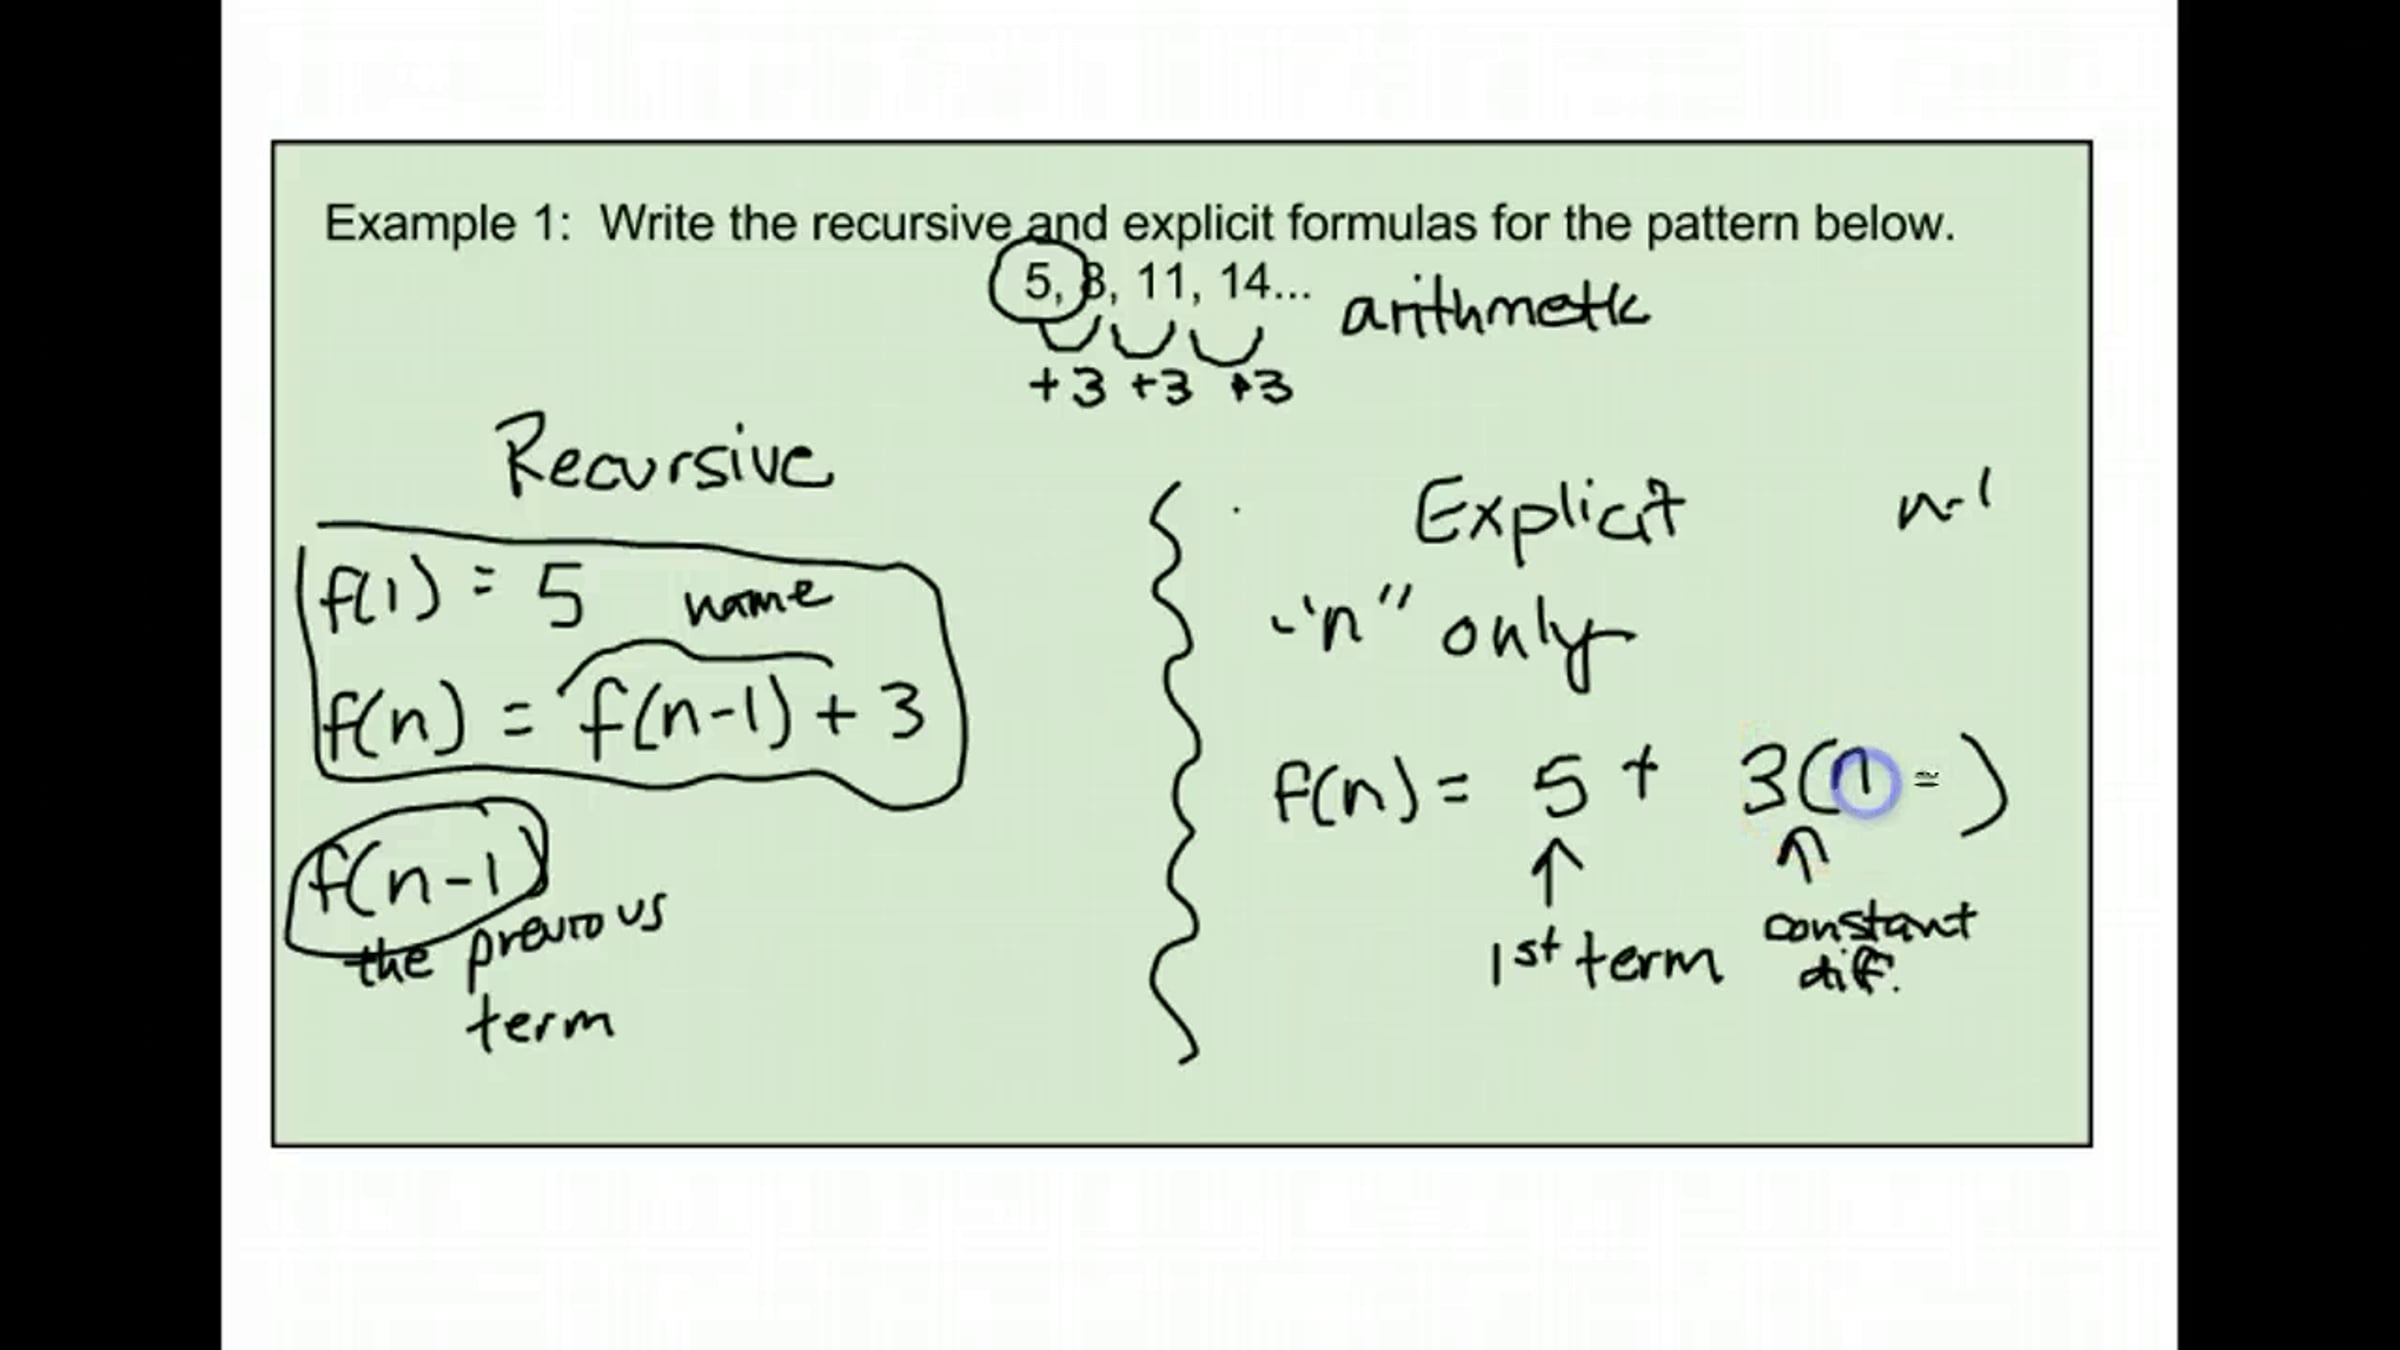 Example 1: Write the recursive and explicit formulas for the pattern below.
5, 8, 11, 14... arithmetic
+3 +3 +3
Recursive
f(1) = 5 name
f(n) = f(n-1) + 3
f(n-1)
the previous
term
Explicit n-1
-"n" only
f(n) = 5 + 3( )
1st term
constant
dif.